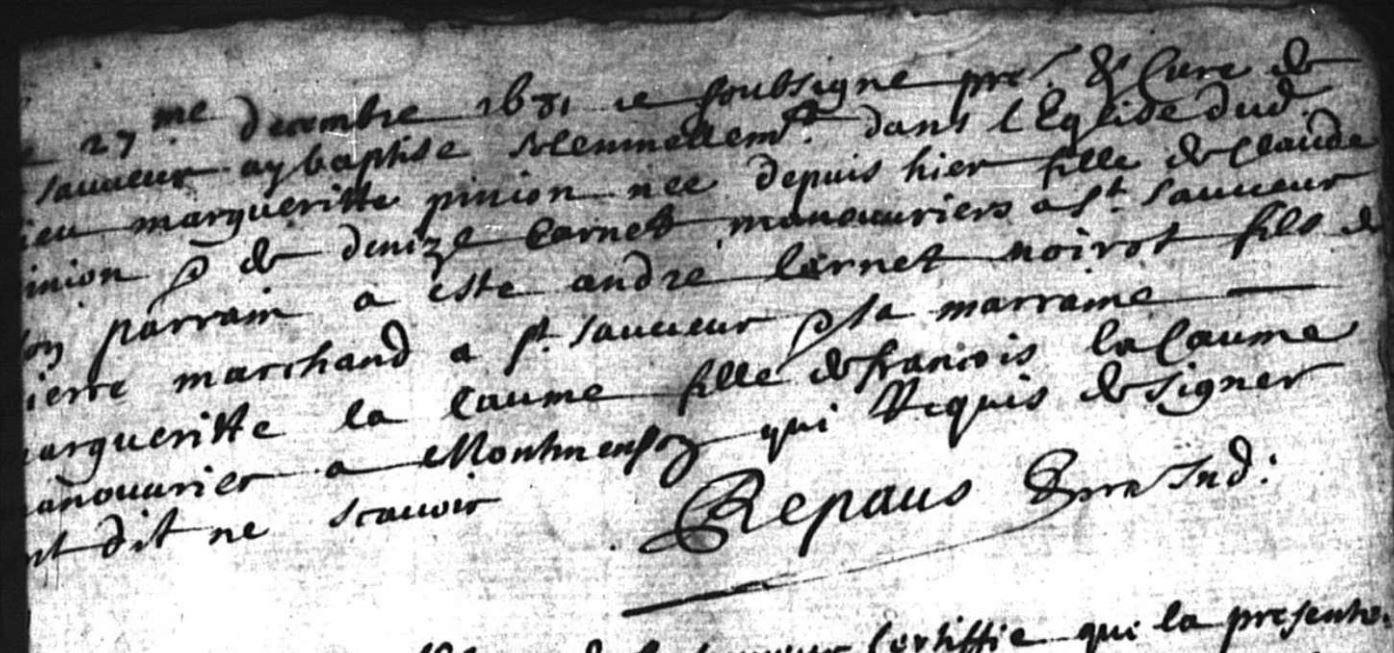 27me decembre 1681 ie soubsigne pre. & Cure de
sauueur ay baptise solemnellemt. dans l Eglise dud.
ieu margueritte pinion nee depuis hier fille de Claude
inion & de denize Cornet manouuriers a st. sauueur
on parrain a este andre Cornet noirot fils de
ierre marchand a st. sauueur & la marraine
argueritte la Caume fille de francois la Caume
anouurier a qui requis de signer
nt dit ne scauoir
Repaus Ind:
Certiffie que la presente